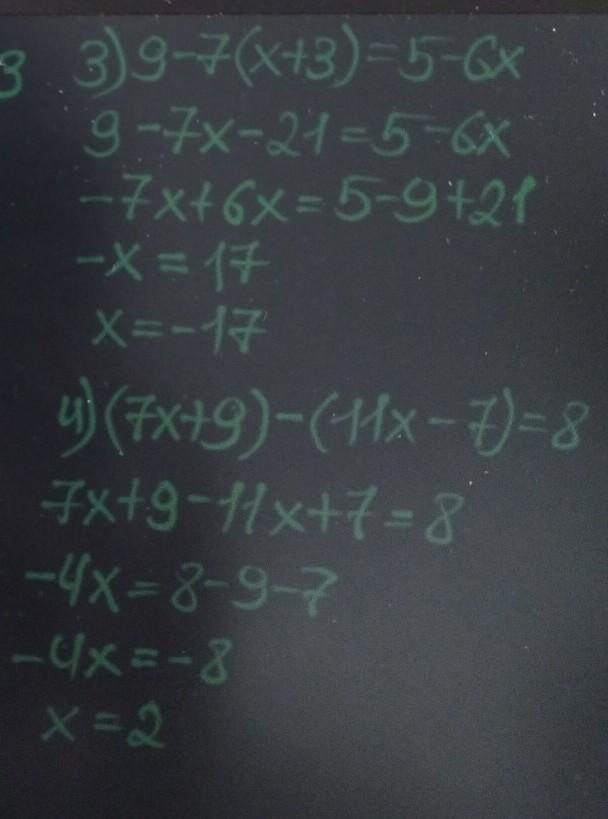 3 3) 9-7(x+3)=5-6x
9-7x-21=5-6x
-7x+6x=5-9+21
-x=17
x=-17
4) (7x+9)-(11x-7)=8
7x+9-11x+7=8
-4x=8-9-7
-4x=-8
x=2